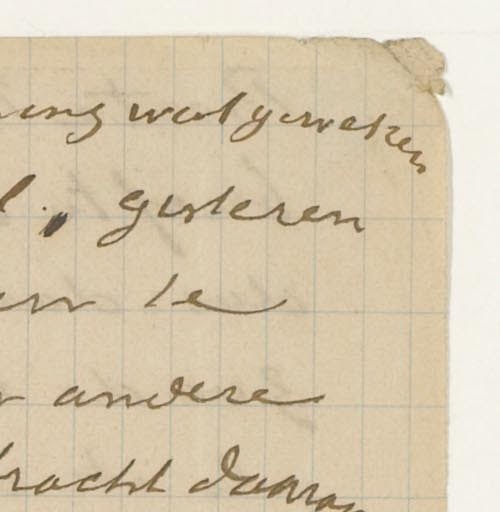 ing wat geweken
l, gisteren
en te
r andere
bracht daaraan